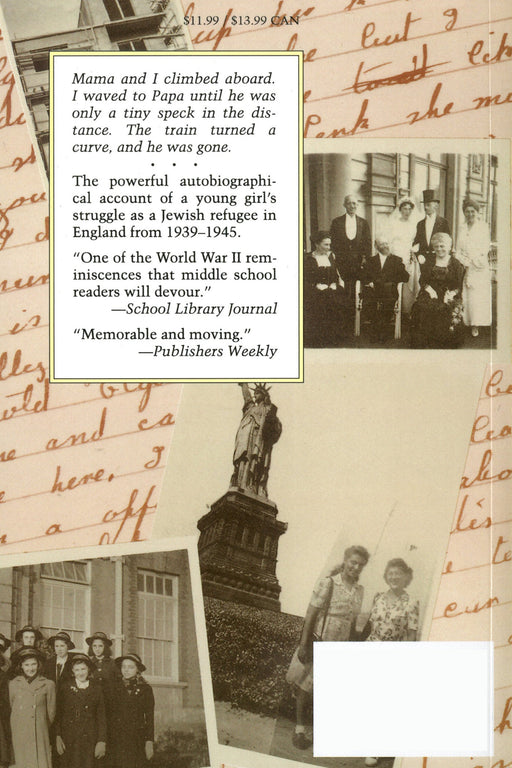 $11.99 / $13.99 CAN
Mama and I climbed aboard.
I waved to Papa until he was
only a tiny speck in the dis-
tance. The train turned a
curve, and he was gone.
• • •
The powerful autobiographi-
cal account of a young girl's
struggle as a Jewish refugee in
England from 1939–1945.
"One of the World War II rem-
iniscences that middle school
readers will devour."
—School Library Journal
"Memorable and moving."
—Publishers Weekly
he but I
she
is
and ca
here, I
a off